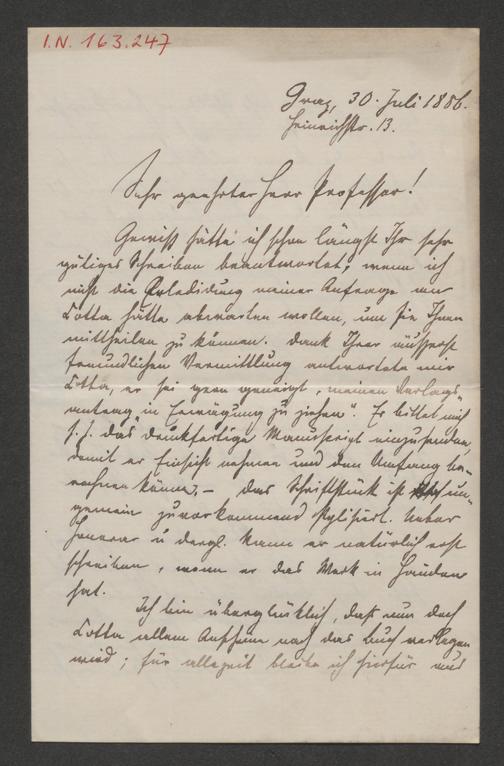 I.N. 163.247
Graz, 30. Juli 1886.
Heinrichstr. 13.
Sehr geehrter Herr Professor!
Gewiß hätte ich schon längst Ihr sehr
gütiges Schreiben beantwortet, wenn ich
nicht die Erledidung meiner Anfrage von
Cotta hätte abwarten wollen, um sie Ihnen
mittheilen zu können. Dank Ihrer äußerst
freundlichen Vermittlung antwortete mir
Cotta, er sei gern geneigt, „meinen Verlags-
antrag in Erwägung zu ziehen“. Er bittet mich
das druckfertige Manuscript einzusenden,
damit er Einsicht nehmen und den Umfang be-
rechnen könne. – Das Schriftstück ist un-
gemein zuvorkommend stylisirt. Ueber
Honorar u dergl. kann er natürlich erst
schreiben, wenn er das Werk in Händen
hat.
Ich bin überglücklich, daß nun doch
Cotta allem Anschein nach das Buch verlegen
wird; für allezeit bleibe ich hierfür und